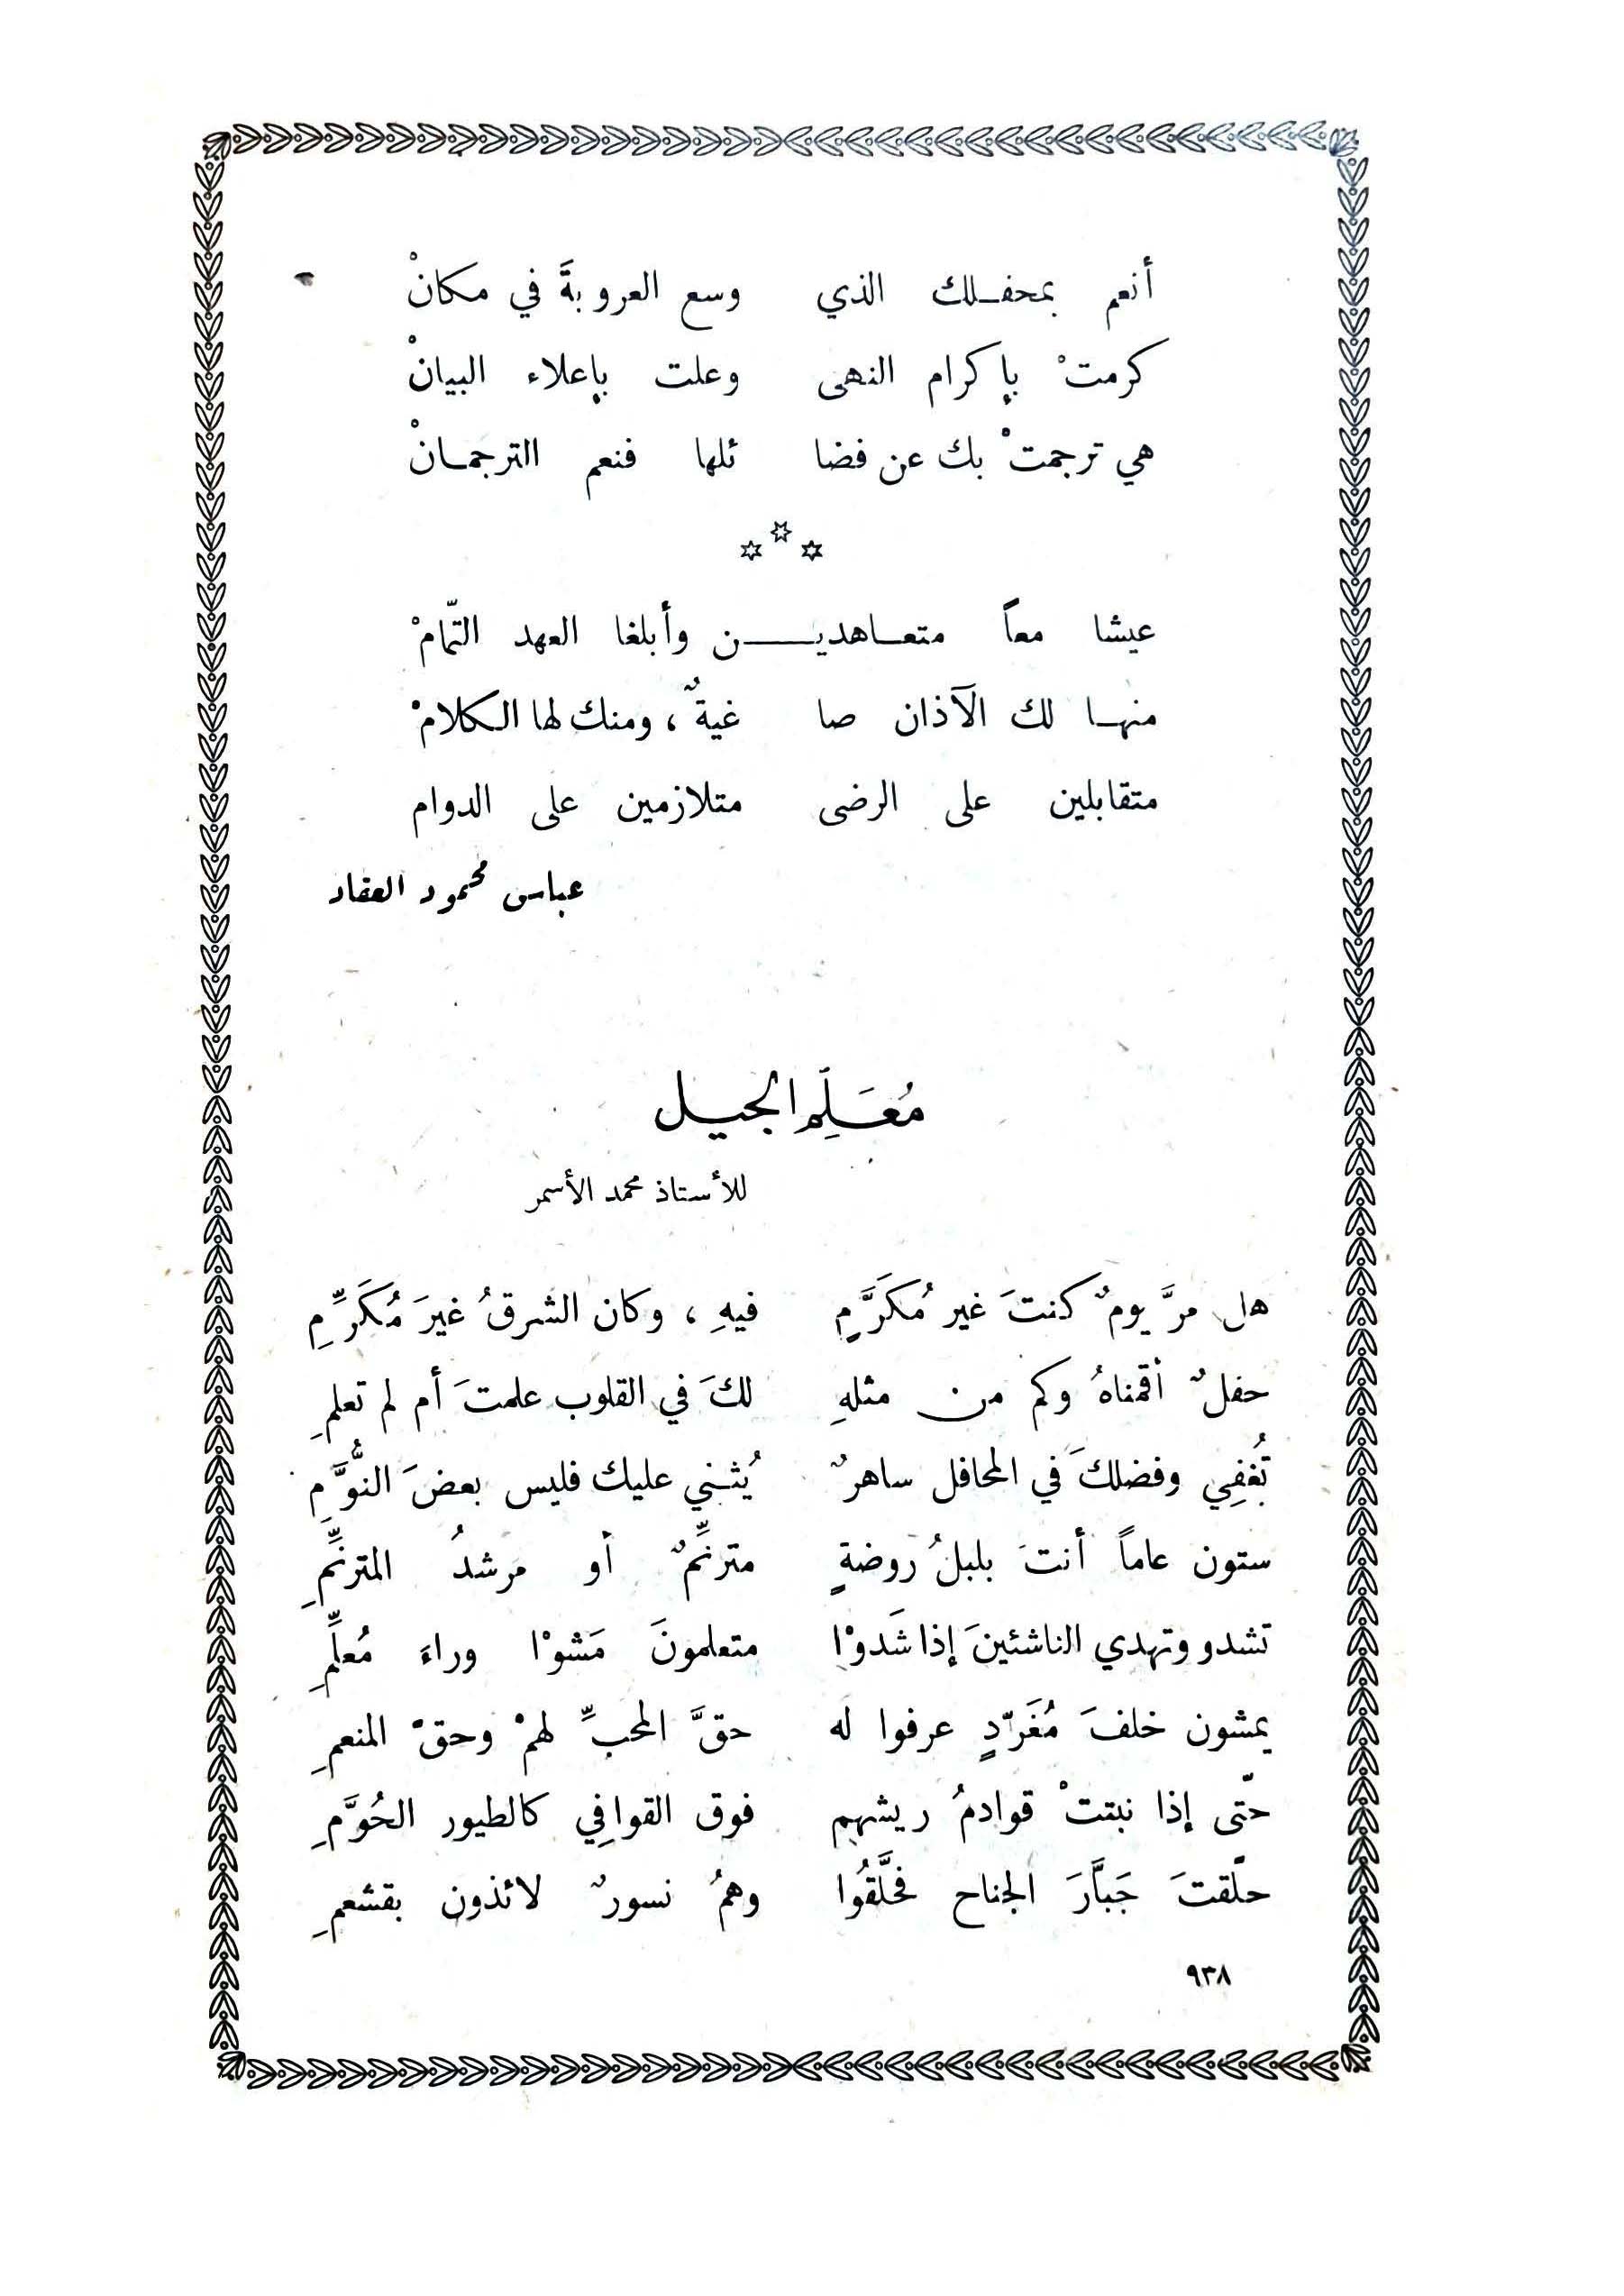 أنعم بمحفلك الذي وسع العروبةَ في مكانْ
كرمتْ بإكرام النهى وعلت بإعلاء البيانْ
هي ترجمتْ بك عن فضا ئلها فنعم الترجمانْ
عيشا معاً متعاهديـن وأبلغا العهد التّمامْ
منها لك الآذان صا غيةٌ ، ومنك لها الكلامْ
متقابلين على الرضى متلازمين على الدوام
عباس محمود العقاد
مُعَلِّم الجيل
للأستاذ محمد الأسمر
هل مرَّ يومٌ كنتَ غير مُكَرَّمٍ فيهِ ، وكان الشرقُ غيرَ مُكَرِّمِ
حفلٌ أقمناهُ وكم من مثلهِ لكَ في القلوب علمتَ أم لم تعلمِ
تُغفِي وفضلكَ في المحافل ساهرٌ يُثني عليك فليس بعضَ النوَّمِ
ستون عاماً أنتَ بلبلُ روضةٍ مترنِّمٌ أو مرشدُ المترنِّمِ
تشدو وتهدي الناشئينَ إذا شَدوْا متعلمونَ مَشوْا وراءَ مُعلِّمِ
يمشون خلفَ مُغَرّدٍ عرفوا له حقَّ المحبِّ لهمْ وحقَّ المنعمِ
حتّى إذا نبتتْ قوادمُ ريشهم فوق القوافِي كالطيور الحُوَّمِ
حلّقتَ جَبَّارَ الجناح فحَلَّقُوا وهمُ نسورٌ لائذون بقشعمِ
٩٣٨